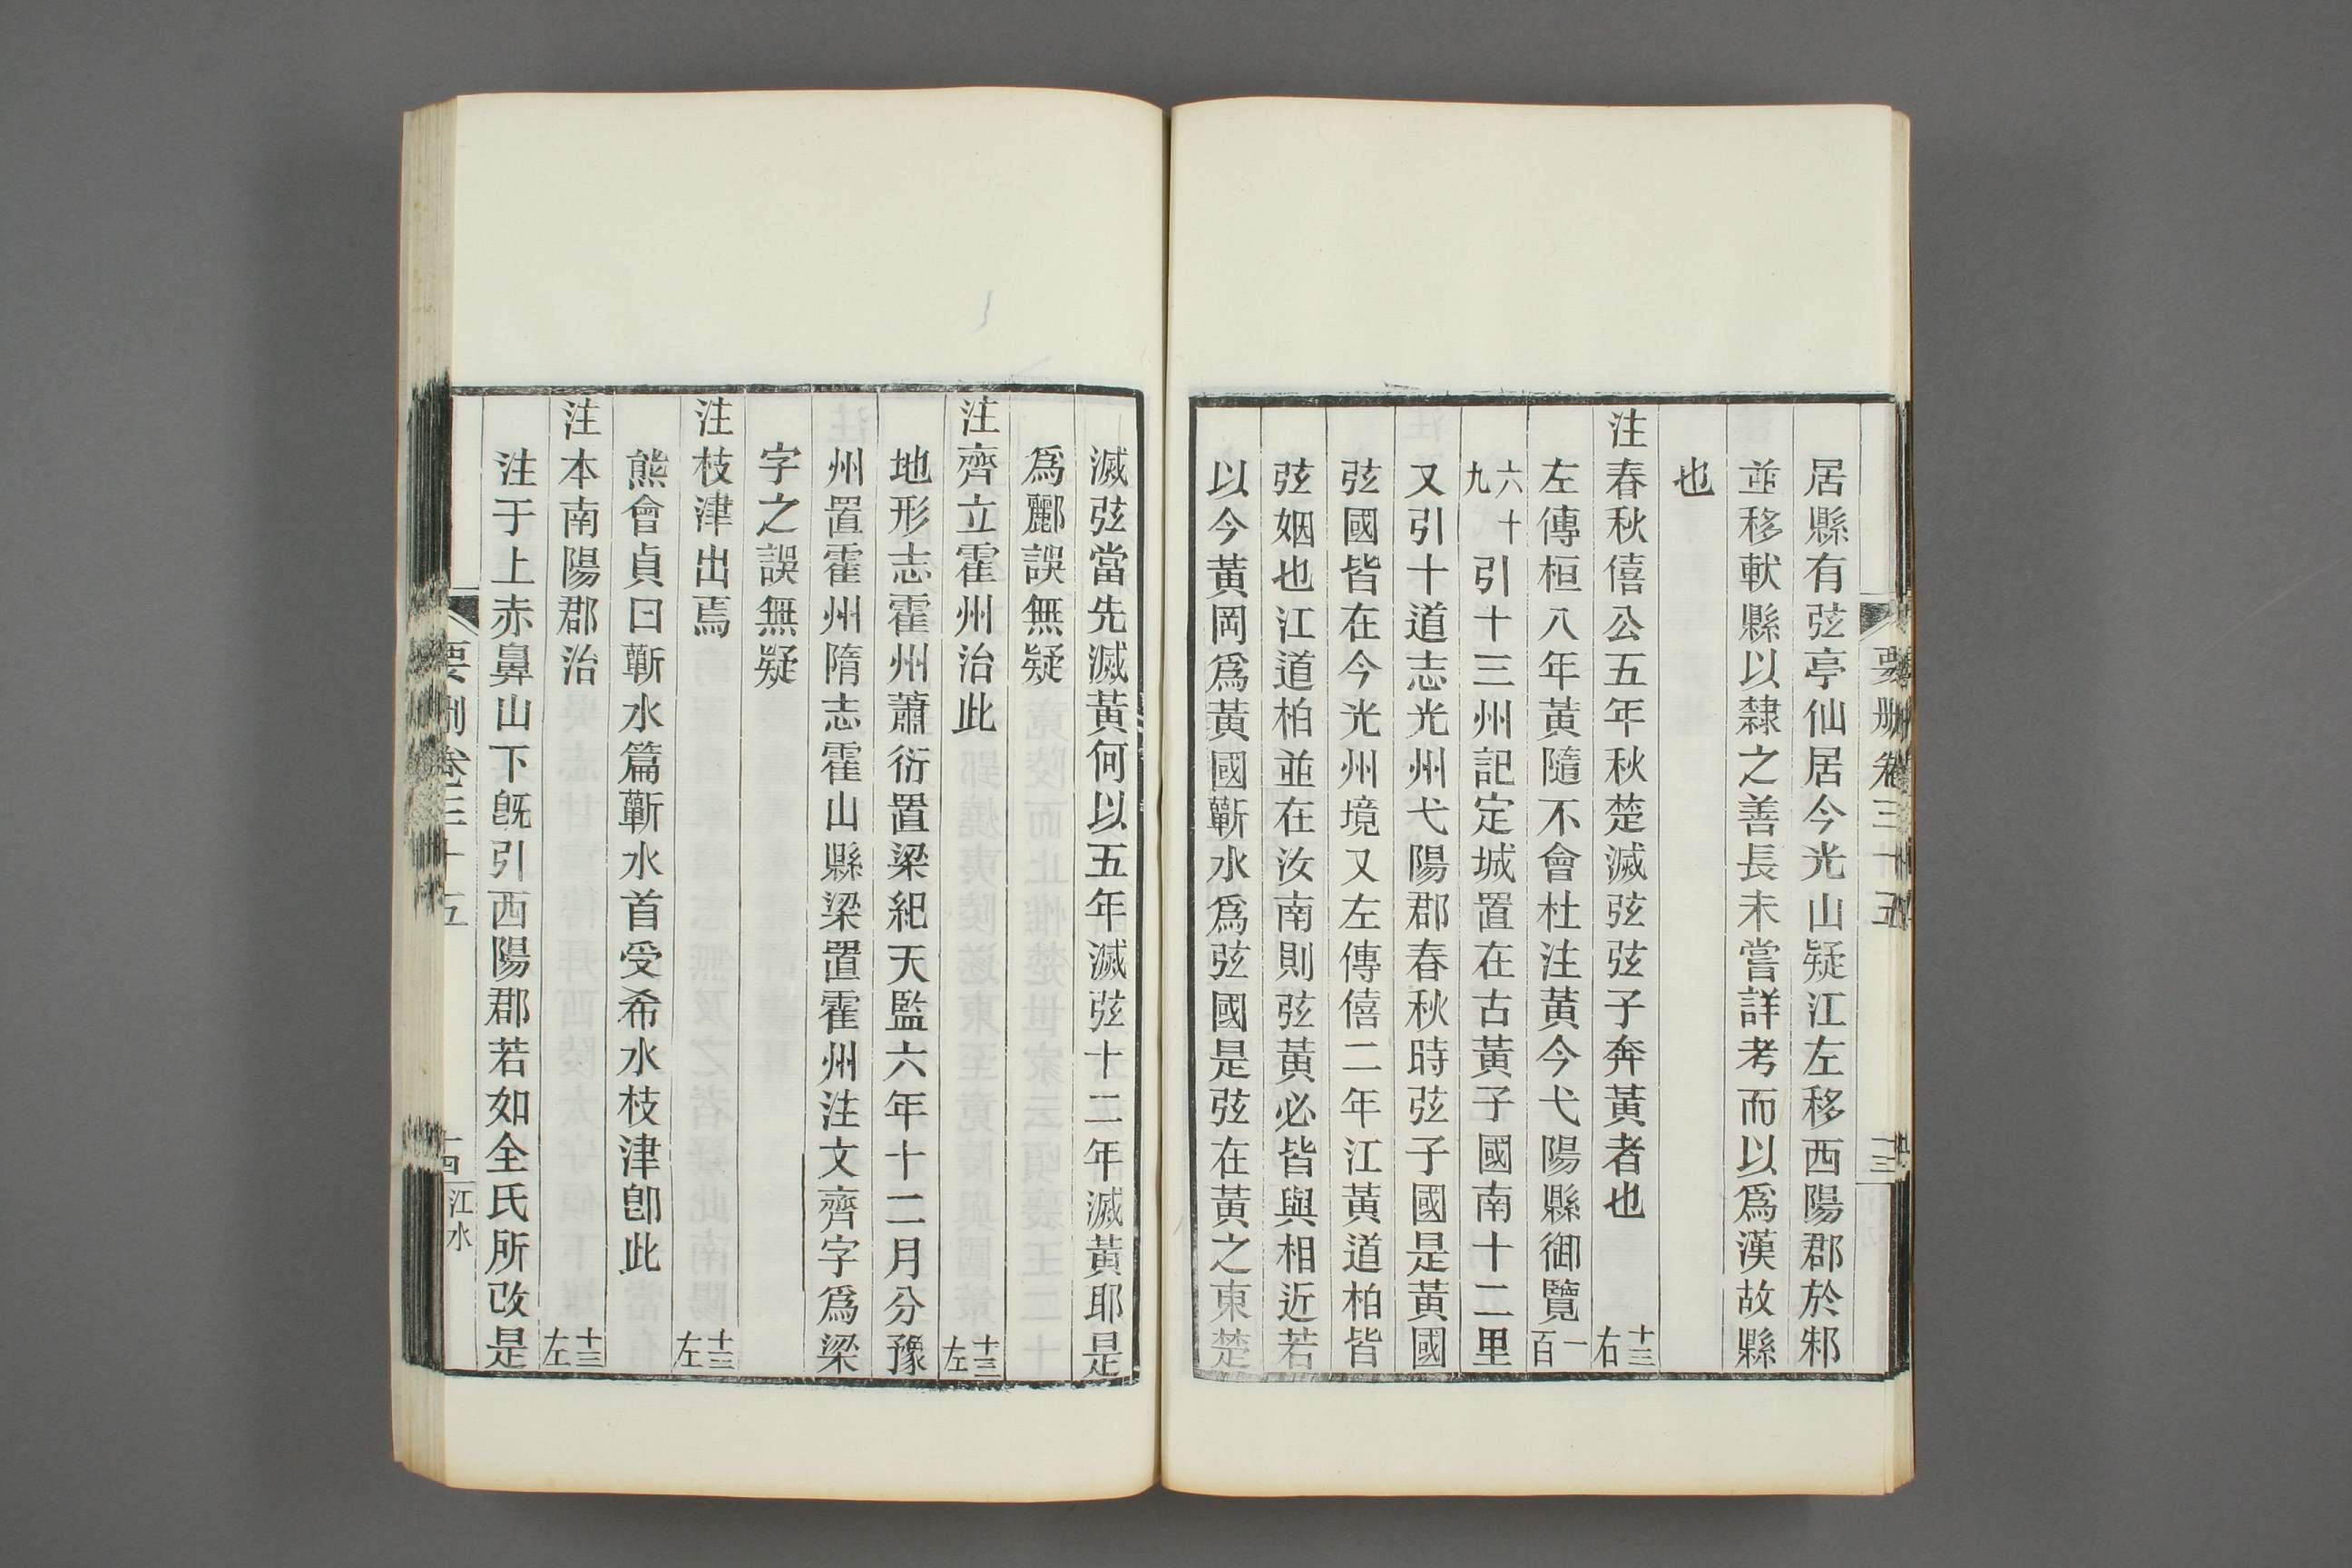 要刪卷三十五
十三
居縣有弦亭仙居今光山疑江左移西陽郡於邾
並移軑縣以隸之善長未嘗詳考而以爲漢故縣
也
注春秋僖公五年秋楚滅弦弦子奔黃者也十三右
左傳桓八年黃隨不會杜注黃今弋陽縣御覽一百
六十九引十三州記定城置在古黃子國南十二里
又引十道志光州弋陽郡春秋時弦子國是黃國
弦國皆在今光州境又左傳僖二年江黃道柏皆
弦姻也江道柏並在汝南則弦黃必皆與相近若
以今黃岡爲黃國蘄水爲弦國是弦在黃之東楚
滅弦當先滅黃何以五年滅弦十二年滅黃耶是
爲酈誤無疑
注齊立霍州治此十三左
地形志霍州蕭衍置梁紀天監六年十二月分豫
州置霍州隋志霍山縣梁置霍州注文齊字爲梁
字之誤無疑
注枝津出焉十三左
熊會貞曰蘄水篇蘄水首受希水枝津卽此
注本南陽郡治十三左
注于上赤鼻山下旣引西陽郡若如全氏所改是
要刪卷三十五
十四
江水